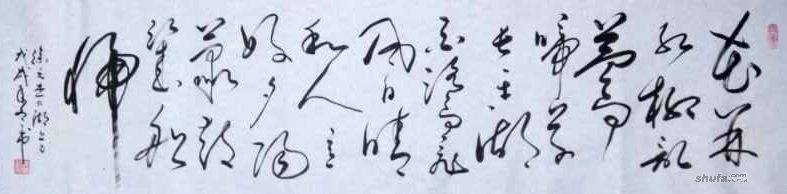 花开
红树乱
莺啼草
长平湖
白鹭飞
风日晴
和人意
好夕阳
箫鼓
几船
归
徐元杰湖上
戊戌年
shufa.com